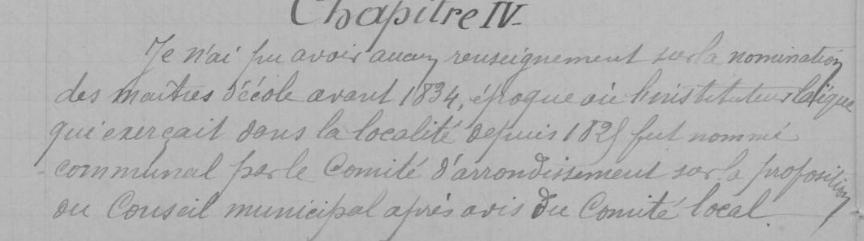 Chapitre IV
Je n'ai pu avoir aucun renseignement sur la nomination
des maîtres d'école avant 1834, époque où l'instituteur laïque
qui exerçait dans la localité depuis 1825 fut nommé
communal par le Comité d'arrondissement sur la proposition
du Conseil municipal après avis du Comité local.